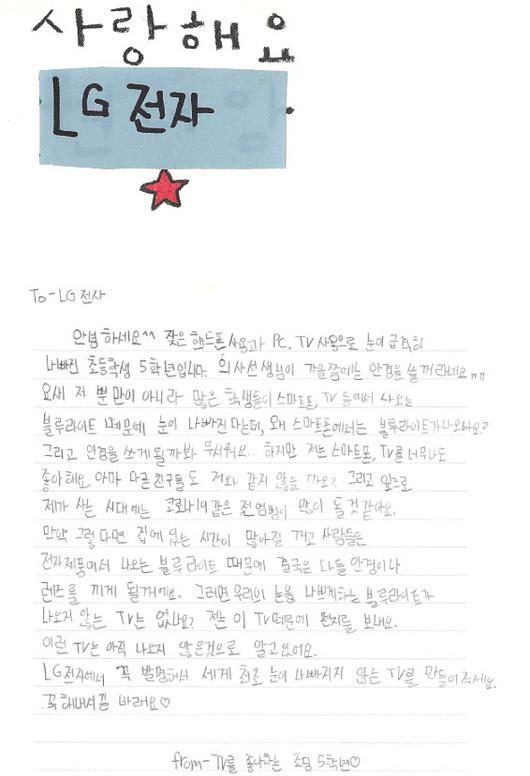 사랑해요
LG 전자
To-LG 전자
안녕하세요^^ 잦은 핸드폰 사용과 PC, TV 사용으로 눈이 급격히
나빠진 초등학생 5학년입니다. 의사선생님이 가을쯤에는 안경을 쓸꺼라네요ㅠㅠ
요새 저 뿐만이 아니라 많은 학생들이 스마트폰, TV 등에서 나오는
블루라이트 때문에 눈이 나빠진다는데, 왜 스마트폰에서는 블루라이트가 나오나요?
그리고 안경을 쓰게 될까봐 무서워요.. 하지만 저는 스마트폰, TV를 너무나도
좋아해요. 아마 다른 친구들도 저와 같지 않을 까요? 그리고 앞으로
제가 사는 시대에는 코로나19같은 전염병이 많이 돌것 같아요.
만약 그렇다면 집에 있는 시간이 많아질 꺼고 사람들은
전자제품에서 나오는 블루라이트 때문에 결국은 다들 안경이나
렌즈를 끼게 될거에요. 그러면 우리의 눈을 나쁘게하는 블루라이트가
나오지 않는 TV는 없나요? 저는 이 TV때문에 편지를 보내요.
이런 TV는 아직 나오지 않은것으로 알고있어요.
LG전자에서 꼭 발명해서 세계 최초 눈이 나빠지지 않는 TV를 만들어주세요.
꼭 해내시길 바래요♡
from-TV를 좋아하는 초딩 5학년♡